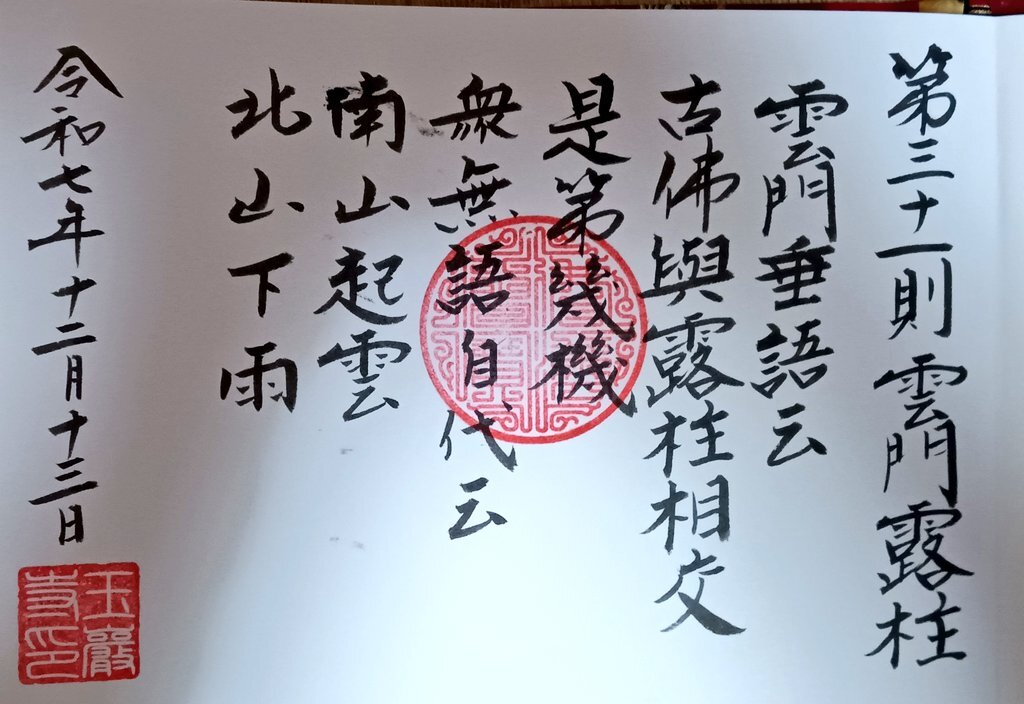 第三十一則雲門露柱
雲門垂語云
古佛與露柱相交
是第幾機
衆無語自代云
南山起雲
北山下雨
令和七年十二月十三日
玉巖
寺印